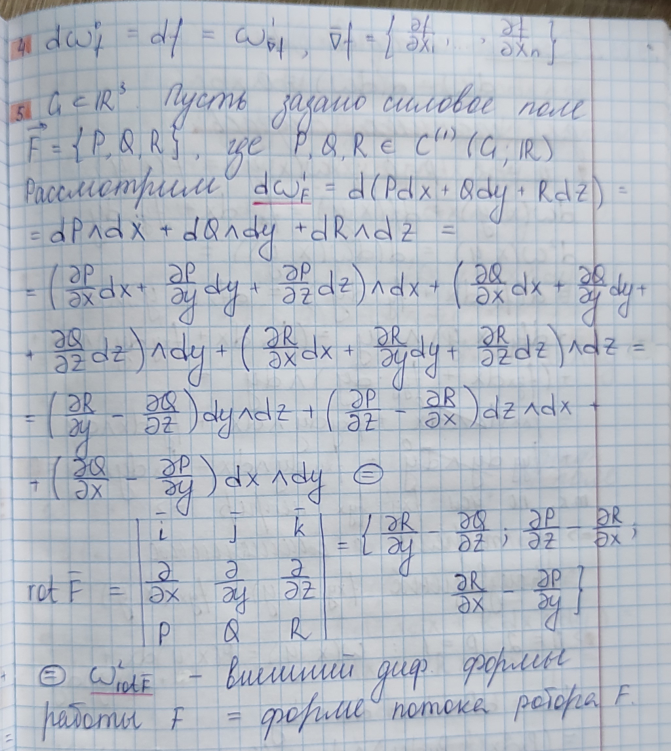 4. dω⁰_f = df = ω¹_∇f, ∇̄f = {∂f/∂x₁, ., ∂f/∂xₙ}
5. G ⊂ ℝ³. Пусть задано силовое поле
F⃗ = {P, Q, R}, где P, Q, R ∈ C⁽¹⁾(G; ℝ)
Рассмотрим dω¹_F = d(Pdx + Qdy + Rdz) =
= dP∧dx + dQ∧dy + dR∧dz =
= (∂P/∂x dx + ∂P/∂y dy + ∂P/∂z dz)∧dx + (∂Q/∂x dx + ∂Q/∂y dy +
+ ∂Q/∂z dz)∧dy + (∂R/∂x dx + ∂R/∂y dy + ∂R/∂z dz)∧dz =
= (∂R/∂y − ∂Q/∂z)dy∧dz + (∂P/∂z − ∂R/∂x)dz∧dx +
+ (∂Q/∂x − ∂P/∂y)dx∧dy ⊜
rot F̄ = | i̅ j̅ k̅ ; ∂/∂x ∂/∂y ∂/∂z ; P Q R | = {∂R/∂y − ∂Q/∂z; ∂P/∂z − ∂R/∂x;
∂R/∂x − ∂P/∂y}
⊜ ω²_rotF̄ - внешний диф формы
работы F = форме потока ротора F.